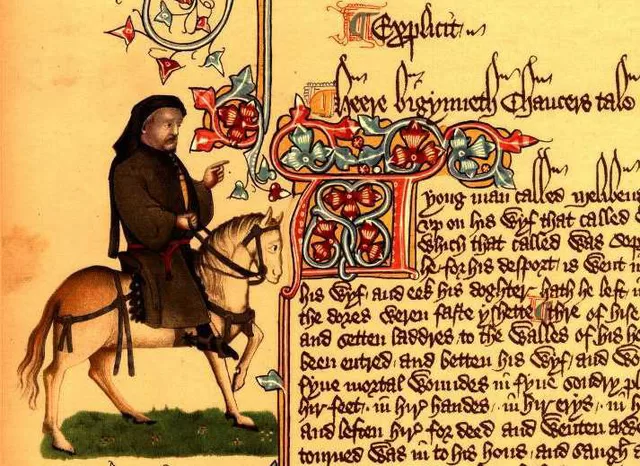 ¶ Explicit
Heere bigynneth Chaucers tale
A yong man called melibeu
up on his wyf that called
Which that called was Sop
he for his desport is went i
his wyf and eek his doghter hath he left
the dores weren faste yshette ¶ Thre of hise
and setten laddres to the walles of his
been entred and betten his wyf and wo
fyue mortal woundes in fyue sondry p
hir feet in hir handes in hir erys in h
and leften hir for deed and wenten awe
tourned was in to his hous and saugh